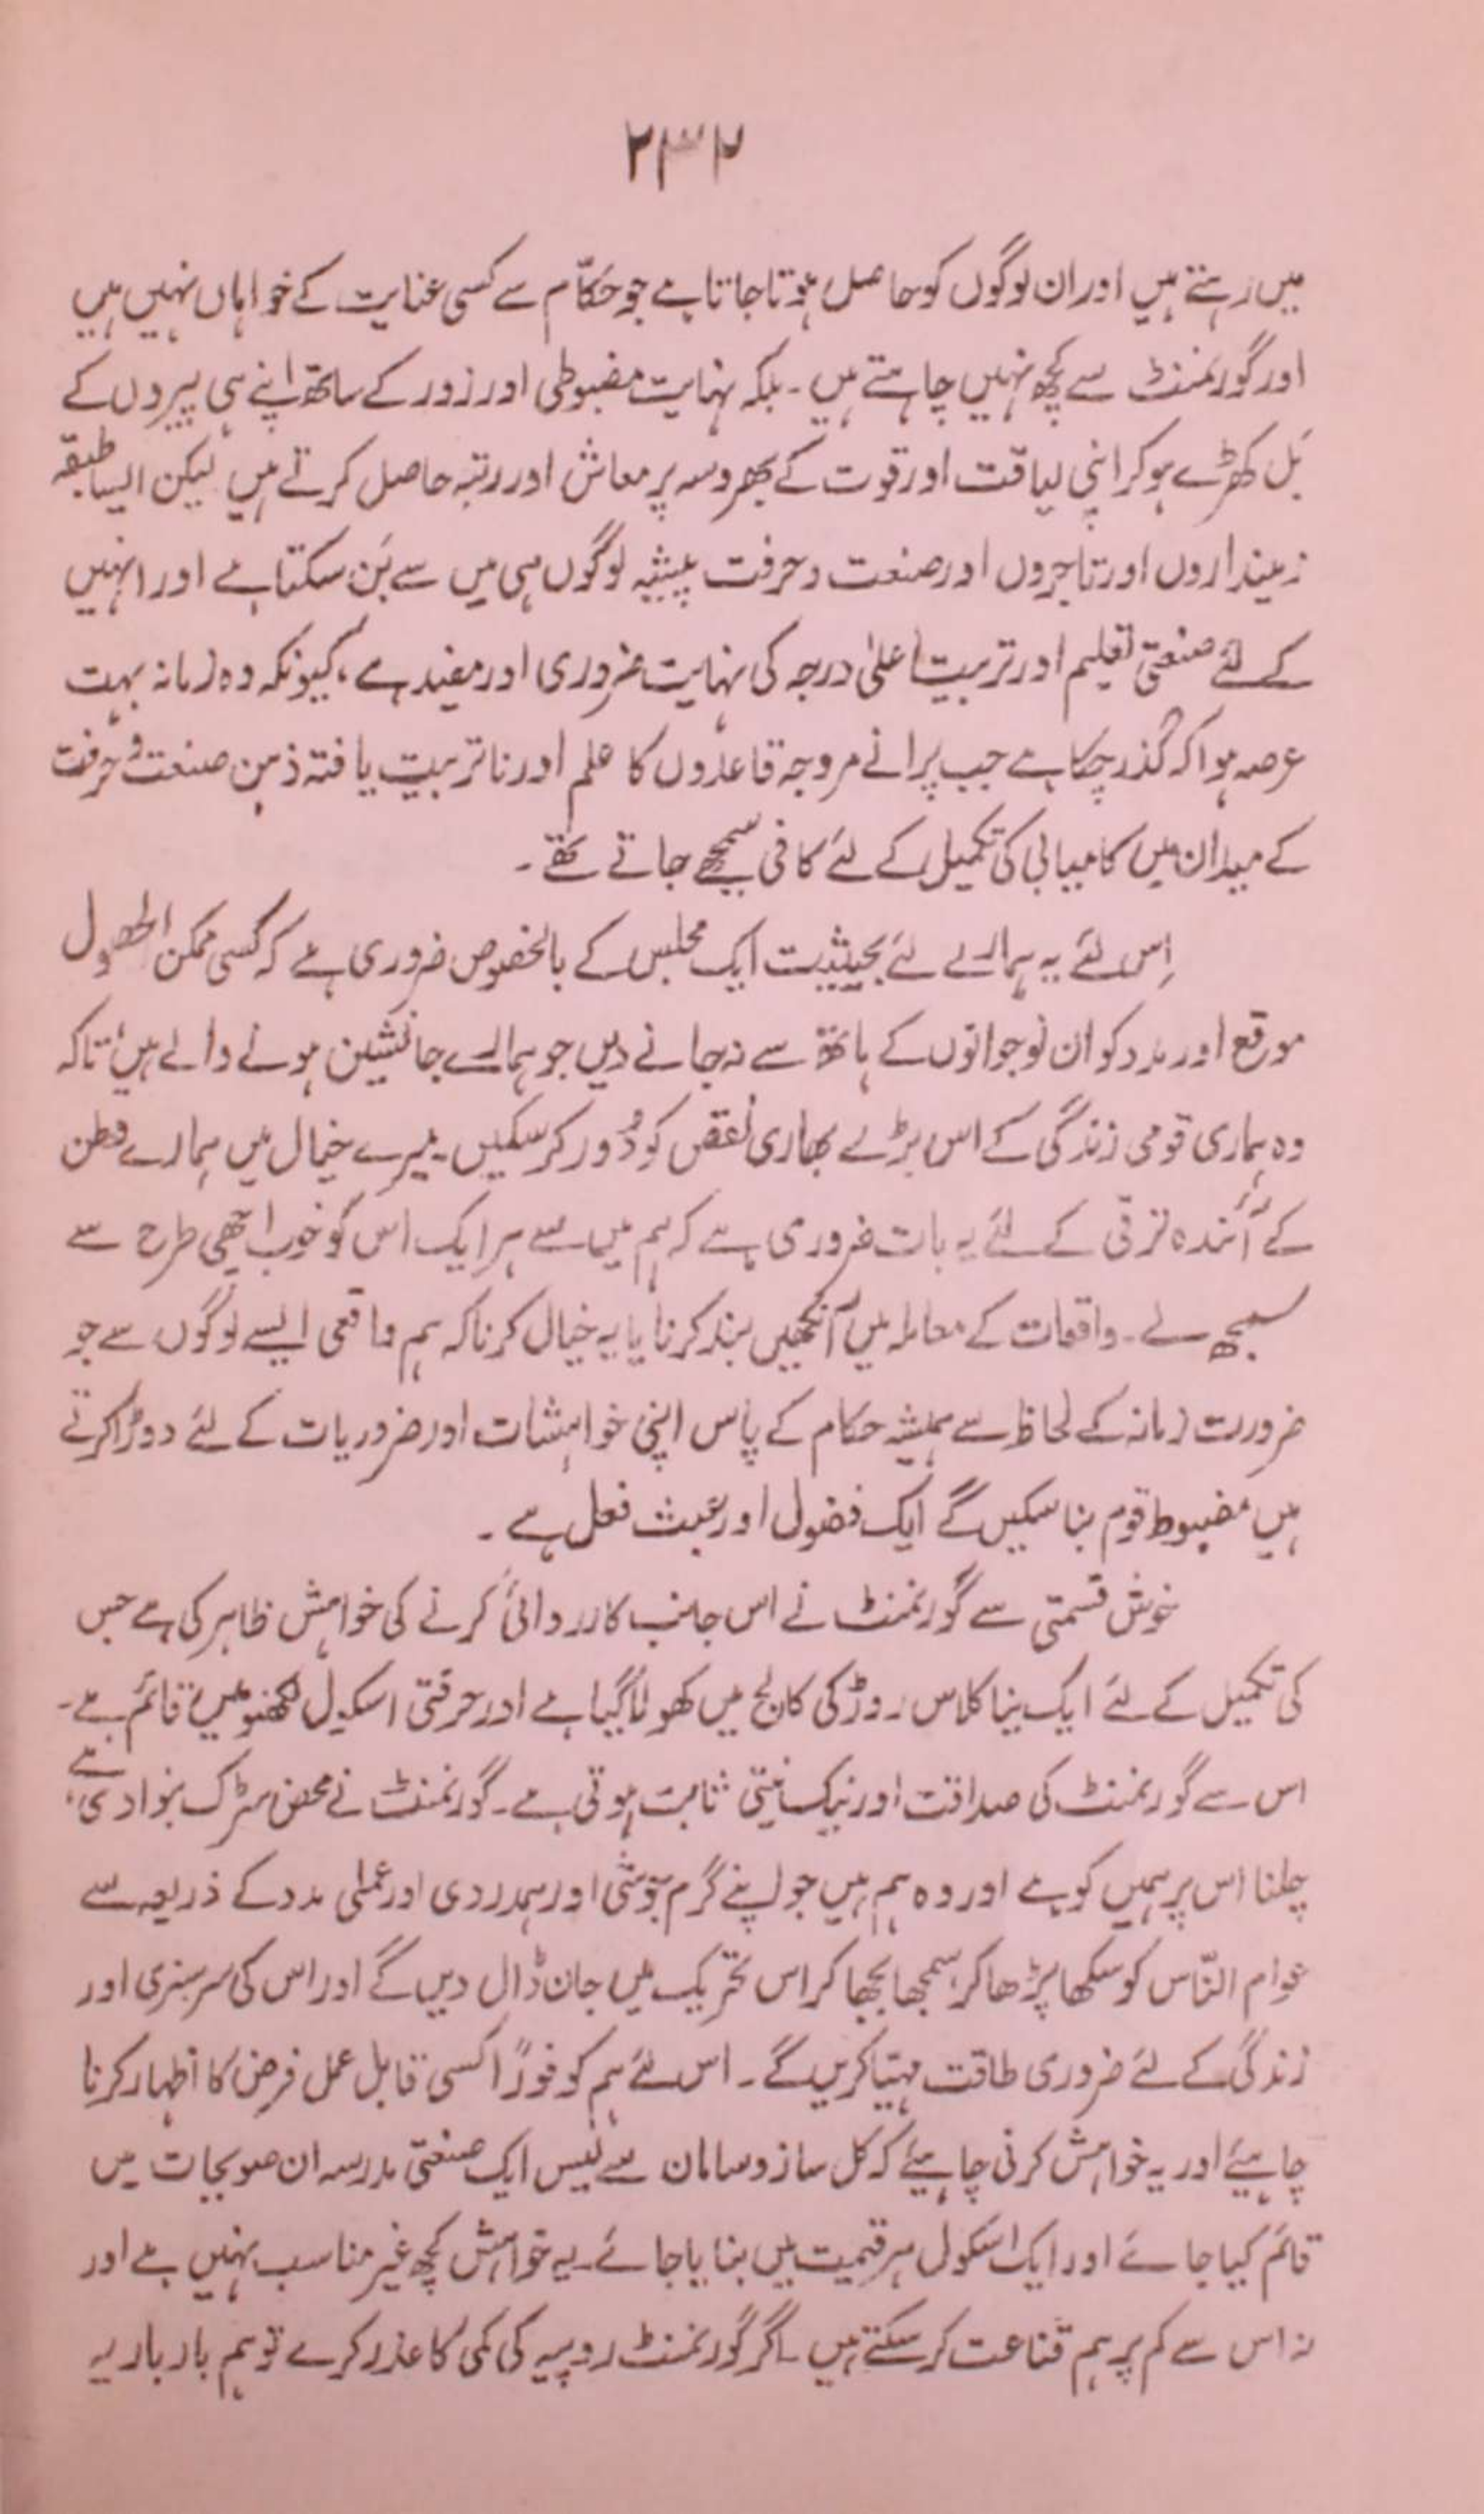 ۲۳۲
میں رہتے ہیں اور ان لوگوں کو حاصل ہوتا جاتا ہے جو حکّام سے کسی عنایت کے خواہاں نہیں ہیں
اور گورنمنٹ سے کچھ نہیں چاہتے ہیں ۔ بلکہ نہایت مضبوطی اور زور کے ساتھ اپنے ہی پیروں کے
بَل کھڑے ہو کر اپنی لیاقت اور قوت کے بھروسہ پر معاش اور رتبہ حاصل کرتے ہیں لیکن ایسا طبقہ
زمینداروں اور تاجروں اور صنعت و حرفت پیشہ لوگوں ہی میں سے بَن سکتا ہے اور انہیں
کے لئے صنعتی تعلیم اور تربیت اعلیٰ درجہ کی نہایت ضروری اور مفید ہے، کیونکہ وہ زمانہ بہت
عرصہ ہوا کہ گذر چکا ہے جب پرانے مروجہ قاعدوں کا علم اور نا تربیت یافتہ ذہن صنعت و حرفت
کے میدان میں کامیابی کی تکمیل کے لئے کافی سمجھے جاتے تھے ۔
اِس لئے یہ ہمارے لئے بحیثیت ایک مجلس کے بالخصوص ضروری ہے کہ کسی ممکن الحصول
موقع اور مدد کو ان نوجوانوں کے ہاتھ سے نہ جانے دیں جو ہمارے جانشین ہونے والے ہیں، تاکہ
وہ ہماری قومی زندگی کے اس بڑے بھاری نقص کو دُور کر سکیں ۔ میرے خیال میں ہمارے وطن
کے آئندہ ترقی کے لئے یہ بات ضروری ہے کہ ہم میں سے ہر ایک اس کو خوب اچھی طرح سے
سمجھ لے ۔ واقعات کے معاملہ میں آنکھیں بند کرنا یا یہ خیال کرنا کہ ہم واقعی ایسے لوگوں سے جو
ضرورت زمانہ کے لحاظ سے ہمیشہ حکام کے پاس اپنی خواہشات اور ضروریات کے لئے دوڑا کرتے
ہیں مضبوط قوم بنا سکیں گے ایک فضول اور عبث فعل ہے ۔
خوش قسمتی سے گورنمنٹ نے اس جانب کارروائی کرنے کی خواہش ظاہر کی ہے جس
کی تکمیل کے لئے ایک نیا کلاس روڑکی کالج میں کھولا گیا ہے اور حرفتی اسکول لکھنؤ میں قائم ہے ۔
اس سے گورنمنٹ کی صداقت اور نیک نیتی ثابت ہوتی ہے ۔ گورنمنٹ نے محض سڑک بنوا دی ہے،
چلنا اس پر ہمیں کو ہے اور وہ ہم ہیں جو اپنے گرم جوشی اور ہمدردی اور عملی مدد کے ذریعہ سے
عوام النّاس کو سکھا پڑھا کر، سمجھا بجھا کر اس تحریک میں جان ڈال دیں گے اور اس کی سرسبزی اور
زندگی کے لئے ضروری طاقت مہیّا کریں گے ۔ اس لئے ہم کو فوراً کسی قابل عمل فرض کا اظہار کرنا
چاہیئے اور یہ خواہش کرنی چاہیئے کہ کل ساز و سامان سے لیس ایک صنعتی مدرسہ ان صوبجات میں
قائم کیا جائے اور ایک اسکول ہر قیمت میں بنایا جائے ۔ یہ خواہش کچھ غیر مناسب نہیں ہے اور
نہ اس سے کم پر ہم قناعت کر سکتے ہیں ۔ اگر گورنمنٹ روپیہ کی کمی کا عذر کرے تو ہم بار بار یہ